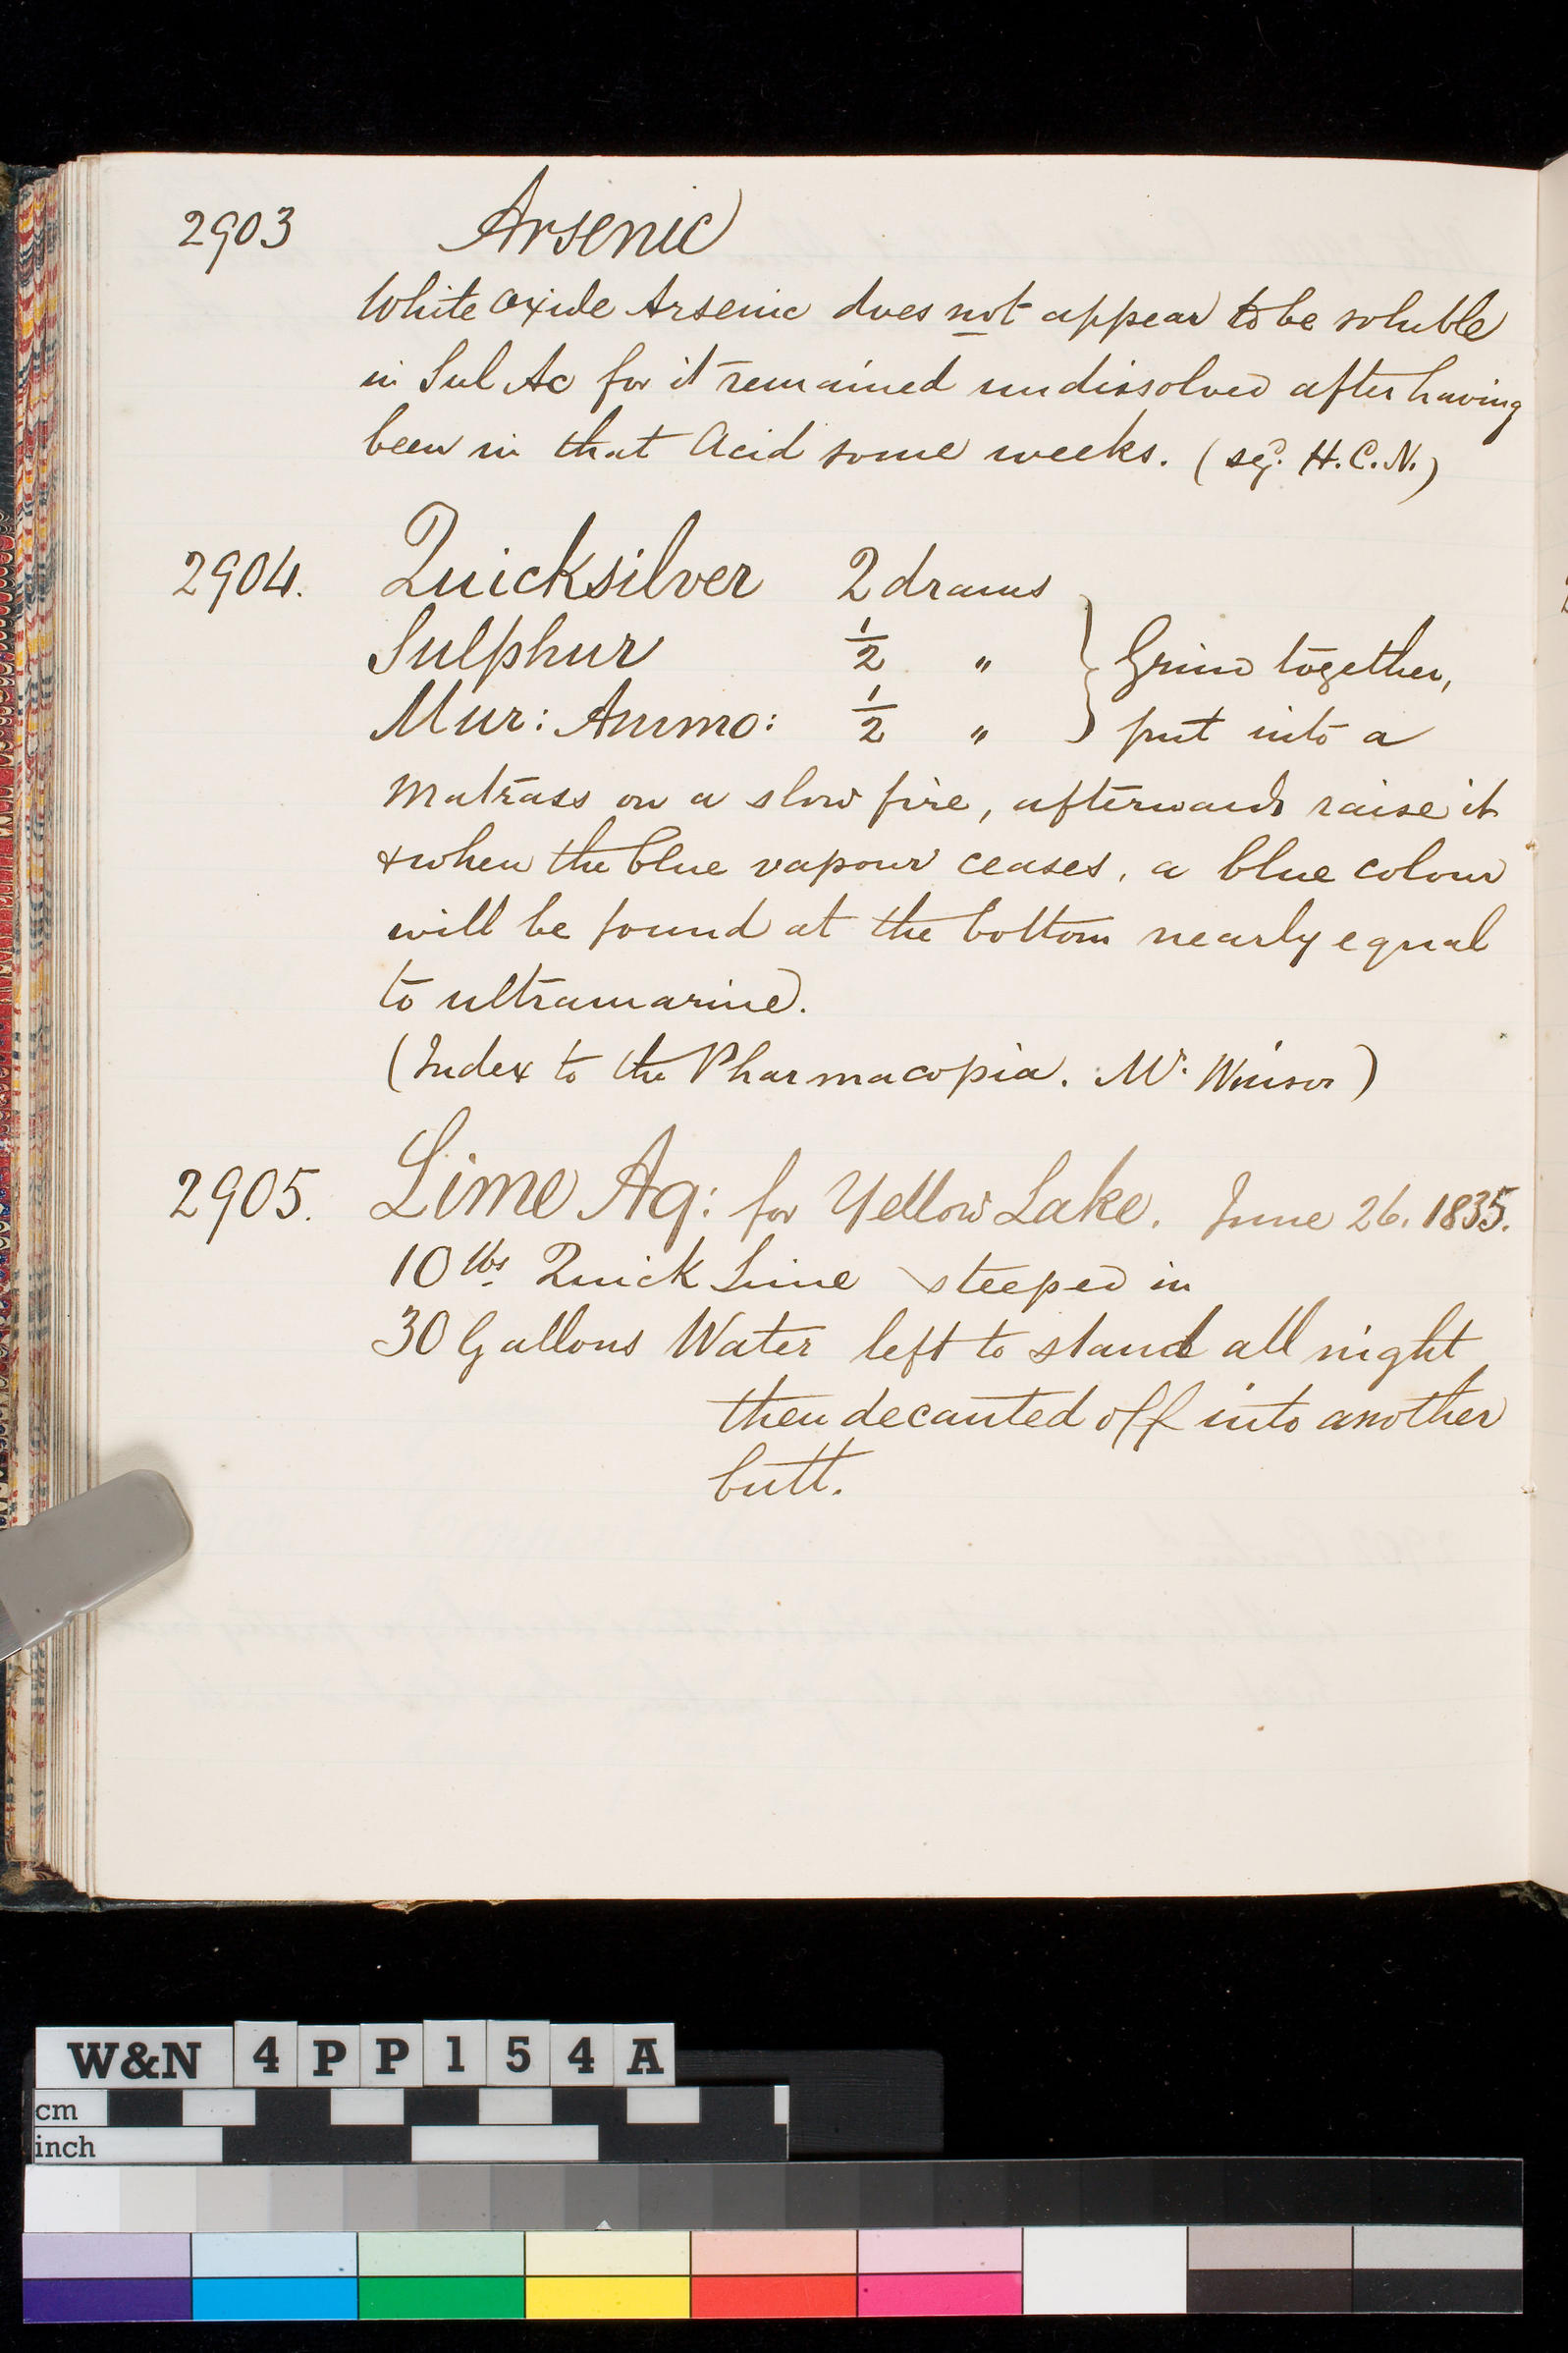 2903 Arsenic
White Oxide Arsenic does not appear to be soluble
in Sul Ac for it remained undissolved after having
been in that Acid some weeks. (sg. H.C.N.)
2904. Quicksilver 2 drams
Sulphur ½ " } Grind together,
Mur: Ammo: ½ " } put into a
matrass on a slow fire, afterwards raise it
& when the blue vapour ceases, a blue colour
will be found at the bottom nearly equal
to ultramarine.
(Index to the Pharmacopia. Mr. Winsor)
2905. Lime Aq: for Yellow Lake. June 26. 1835.
10 lbs Quick Lime steeped in
30 Gallons Water left to stand all night
then decanted off into another
butt.
W&N 4PP154A
cm
inch